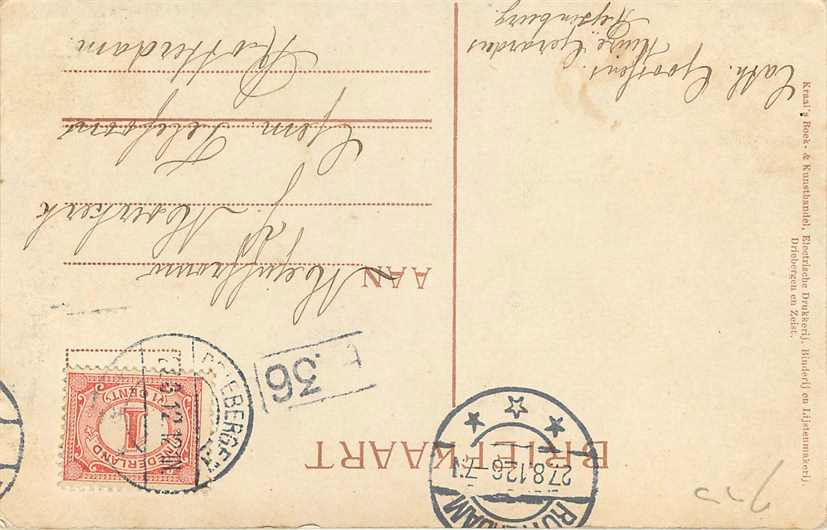 ROTTERDAM
27.8.12 6-7N
BRIEFKAART
DRIEBERGEN
NEDERLAND
1
CENT
.36
AAN Mejuffrouw
J. Moerkerk
Gem. Telefoon
Rotterdam.
Cath. Goossens.
Huize Gerardus
Rijsenburg
Kraal's Boek- & Kunsthandel, Electrische Drukkerij, Binderij en Lijstenmakerij.
Driebergen en Zeist.